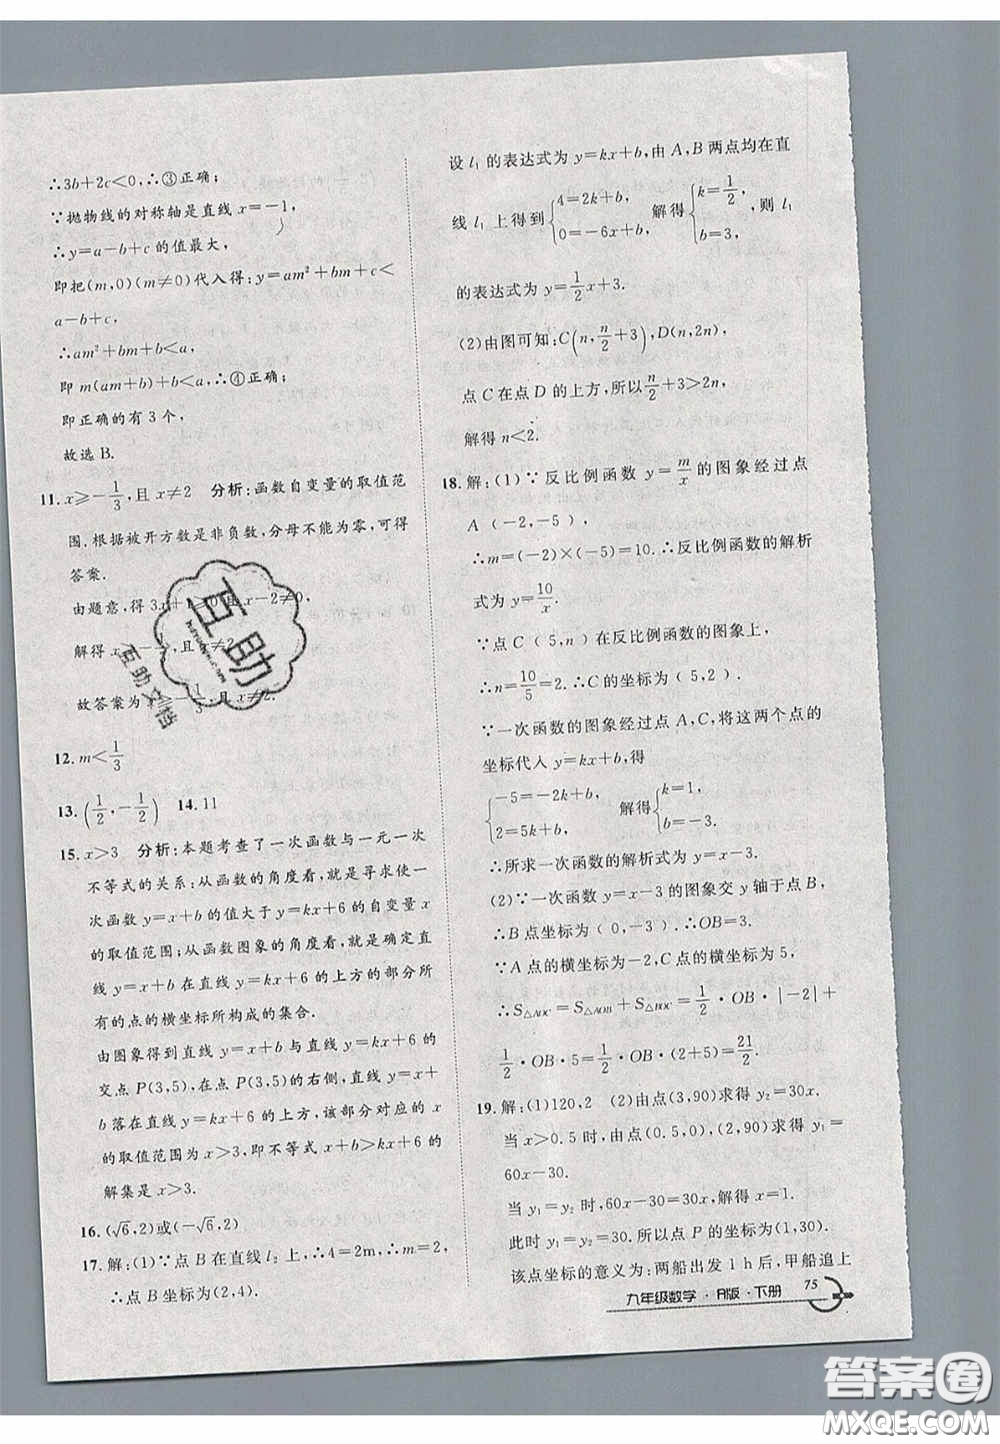 ∴3b+2c<0,∴③正确;
∵抛物线的对称轴是直线 x=-1,
∴y=a-b+c 的值最大,
即把(m,0)(m≠0)代入得:y=am²+bm+c<
a-b+c,
∴am²+bm+b<a,
即 m(am+b)+b<a,∴④正确;
即正确的有 3 个,
故选 B.
11. x⩾-1/3,且 x≠2 分析:函数自变量的取值范
围.根据被开方数是非负数,分母不能为零,可得
答案.
由题意,得 3x+1⩾0 且 x-2≠0,
解得 x⩾-1/3,且 x≠2
故答案为 x⩾-1/3,且 x≠2.
12. m<1/3
13. (1/2,-1/2) 14. 11
15. x>3 分析:本题考查了一次函数与一元一次
不等式的关系:从函数的角度看,就是寻求使一
次函数 y=x+b 的值大于 y=kx+6 的自变量 x
的取值范围;从函数图象的角度看,就是确定直
线 y=x+b 在直线 y=kx+6 的上方的部分所
有的点的横坐标所构成的集合.
由图象得到直线 y=x+b 与直线 y=kx+6 的
交点 P(3,5),在点 P(3,5)的右侧,直线 y=x+
b 落在直线 y=kx+6 的上方,该部分对应的 x
的取值范围为 x>3,即不等式 x+b>kx+6 的
解集是 x>3.
16. (√6,2)或(-√6,2)
17. 解:(1)∵点 B 在直线 l₂ 上,∴4=2m,∴m=2,
∴点 B 坐标为(2,4).
设 l₁ 的表达式为 y=kx+b,由 A,B 两点均在直
线 l₁ 上得到{4=2k+b, 0=-6x+b; 解得{k=1/2, b=3, 则 l₁
的表达式为 y=1/2x+3.
(2)由图可知:C(n,n/2+3),D(n,2n),
点 C 在点 D 的上方,所以n/2+3>2n,
解得 n<2.
18. 解:(1)∵反比例函数 y=m/x 的图象经过点
A(-2,-5),
∴m=(-2)×(-5)=10.∴反比例函数的解析
式为 y=10/x.
∵点 C(5,n)在反比例函数的图象上,
∴n=10/5=2.∴C 的坐标为(5,2).
∵一次函数的图象经过点 A,C,将这两个点的
坐标代入 y=kx+b,得
{-5=-2k+b, 2=5k+b, 解得{k=1, b=-3.
∴所求一次函数的解析式为 y=x-3.
(2)∵一次函数 y=x-3 的图象交 y 轴于点 B,
∴B 点坐标为(0,-3).∴OB=3.
∵A 点的横坐标为-2,C 点的横坐标为 5,
∴S△AOC=S△AOB+S△BOC=1/2·OB·|-2|+
1/2·OB·5=1/2·OB·(2+5)=21/2.
19. 解:(1)120,2 (2)由点(3,90)求得 y₂=30x.
当 x>0.5 时,由点(0.5,0),(2,90)求得 y₁=
60x-30.
当 y₁=y₂ 时,60x-30=30x,解得 x=1.
此时 y₁=y₂=30.所以点 P 的坐标为(1,30).
该点坐标的意义为:两船出发 1 h 后,甲船追上
九年级数学·R版·下册 75
互助
互助文档
答案圈
MXQE.COM